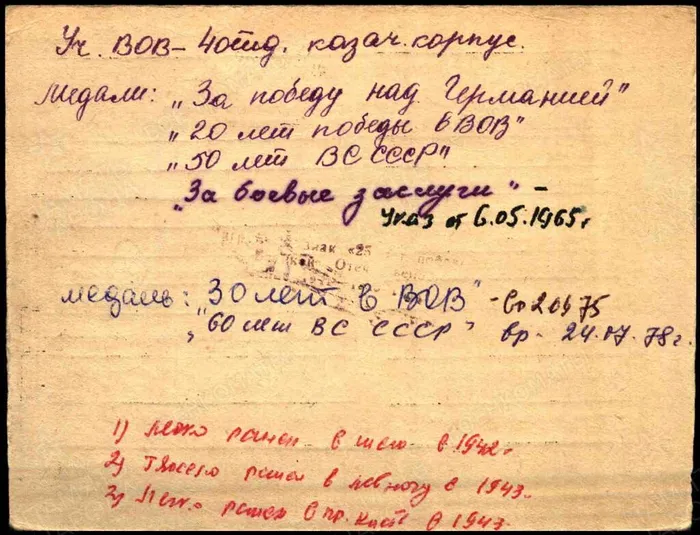 Уч. ВОВ – 4 отд. казач. корпус.
Медали: „За победу над Германией"
„20 лет победы в ВОВ"
„50 лет ВС СССР"
„За боевые заслуги" –
Указ от 6.05.1965г
знак «25
Оте
медаль: „30 лет в ВОВ" –
„60 лет ВС СССР" вр. 24.07.78г.
1) легко ранен в шею в 1942г
2) тяжело ранен в лев ногу в 1943г.
3) Легко ранен в пр. кисть в 1943